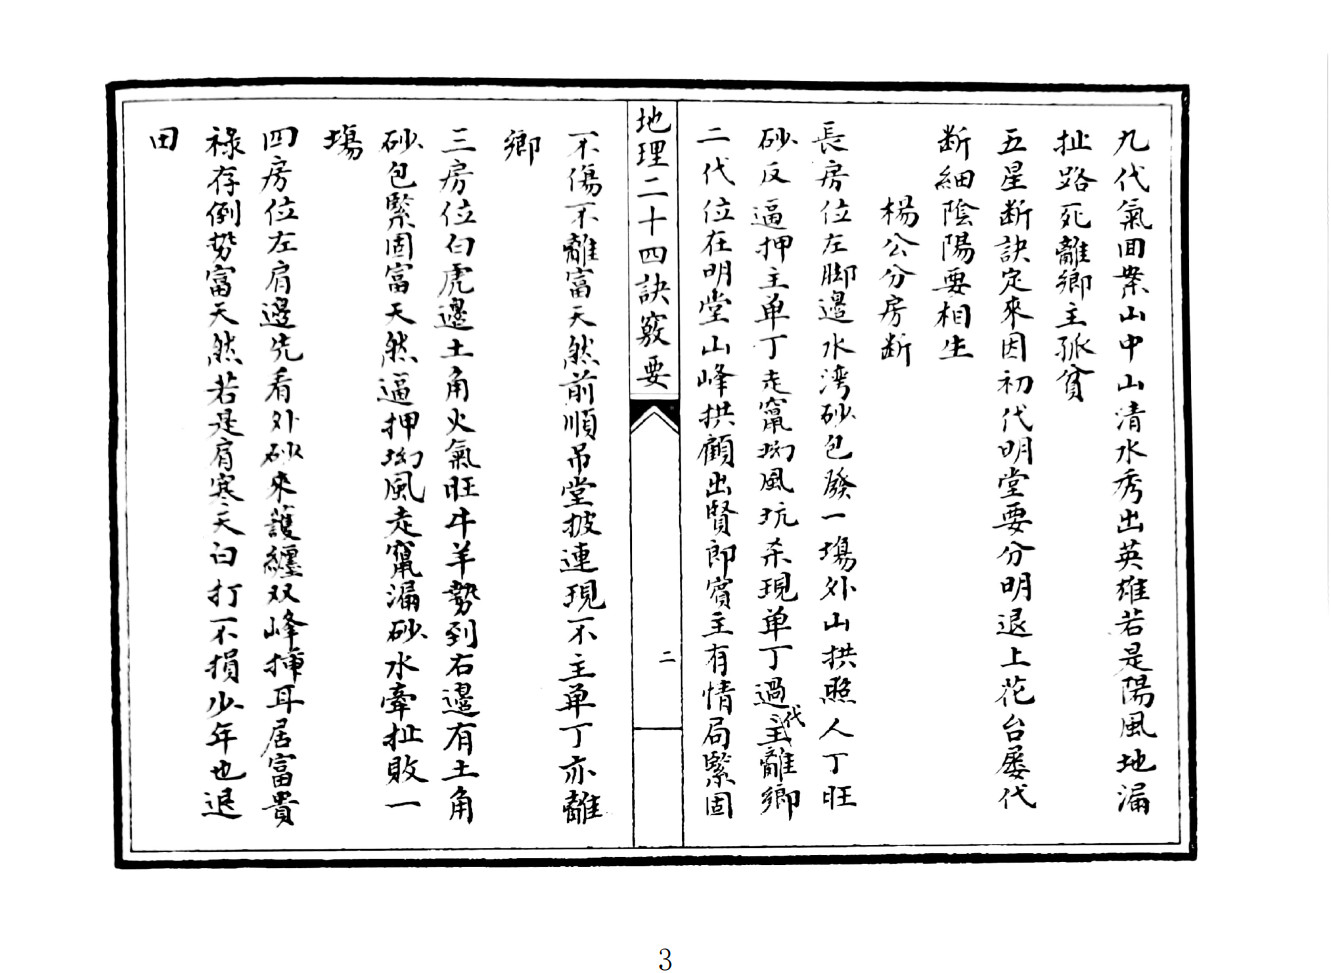 九代氣回案山中山清水秀出英雄若是陽風地漏
扯路死離鄉主孤貧
五星断訣定來因初代明堂要分明退上花台屡代
断細陰陽要相生
楊公分房断
長房位左脚邊水湾砂包發一塲外山拱照人丁旺
砂反逼押主单丁走竄坳風坑杀現单丁過主代離鄉
二代位在明堂山峰拱顧出賢郎賓主有情局緊固
地理二十四訣竅要
二
不傷不離富天然前順吊堂披連現不主单丁亦離
鄉
三房位白虎邊土角火氣旺牛羊勢到右邊有土角
砂包緊固富天然逼押坳風走竄漏砂水牽扯敗一
塲
四房位左肩邊先看外砂來護纏双峰揷耳居富貴
祿存倒势富天然若是肩寒天臼打不損少年也退
田
3